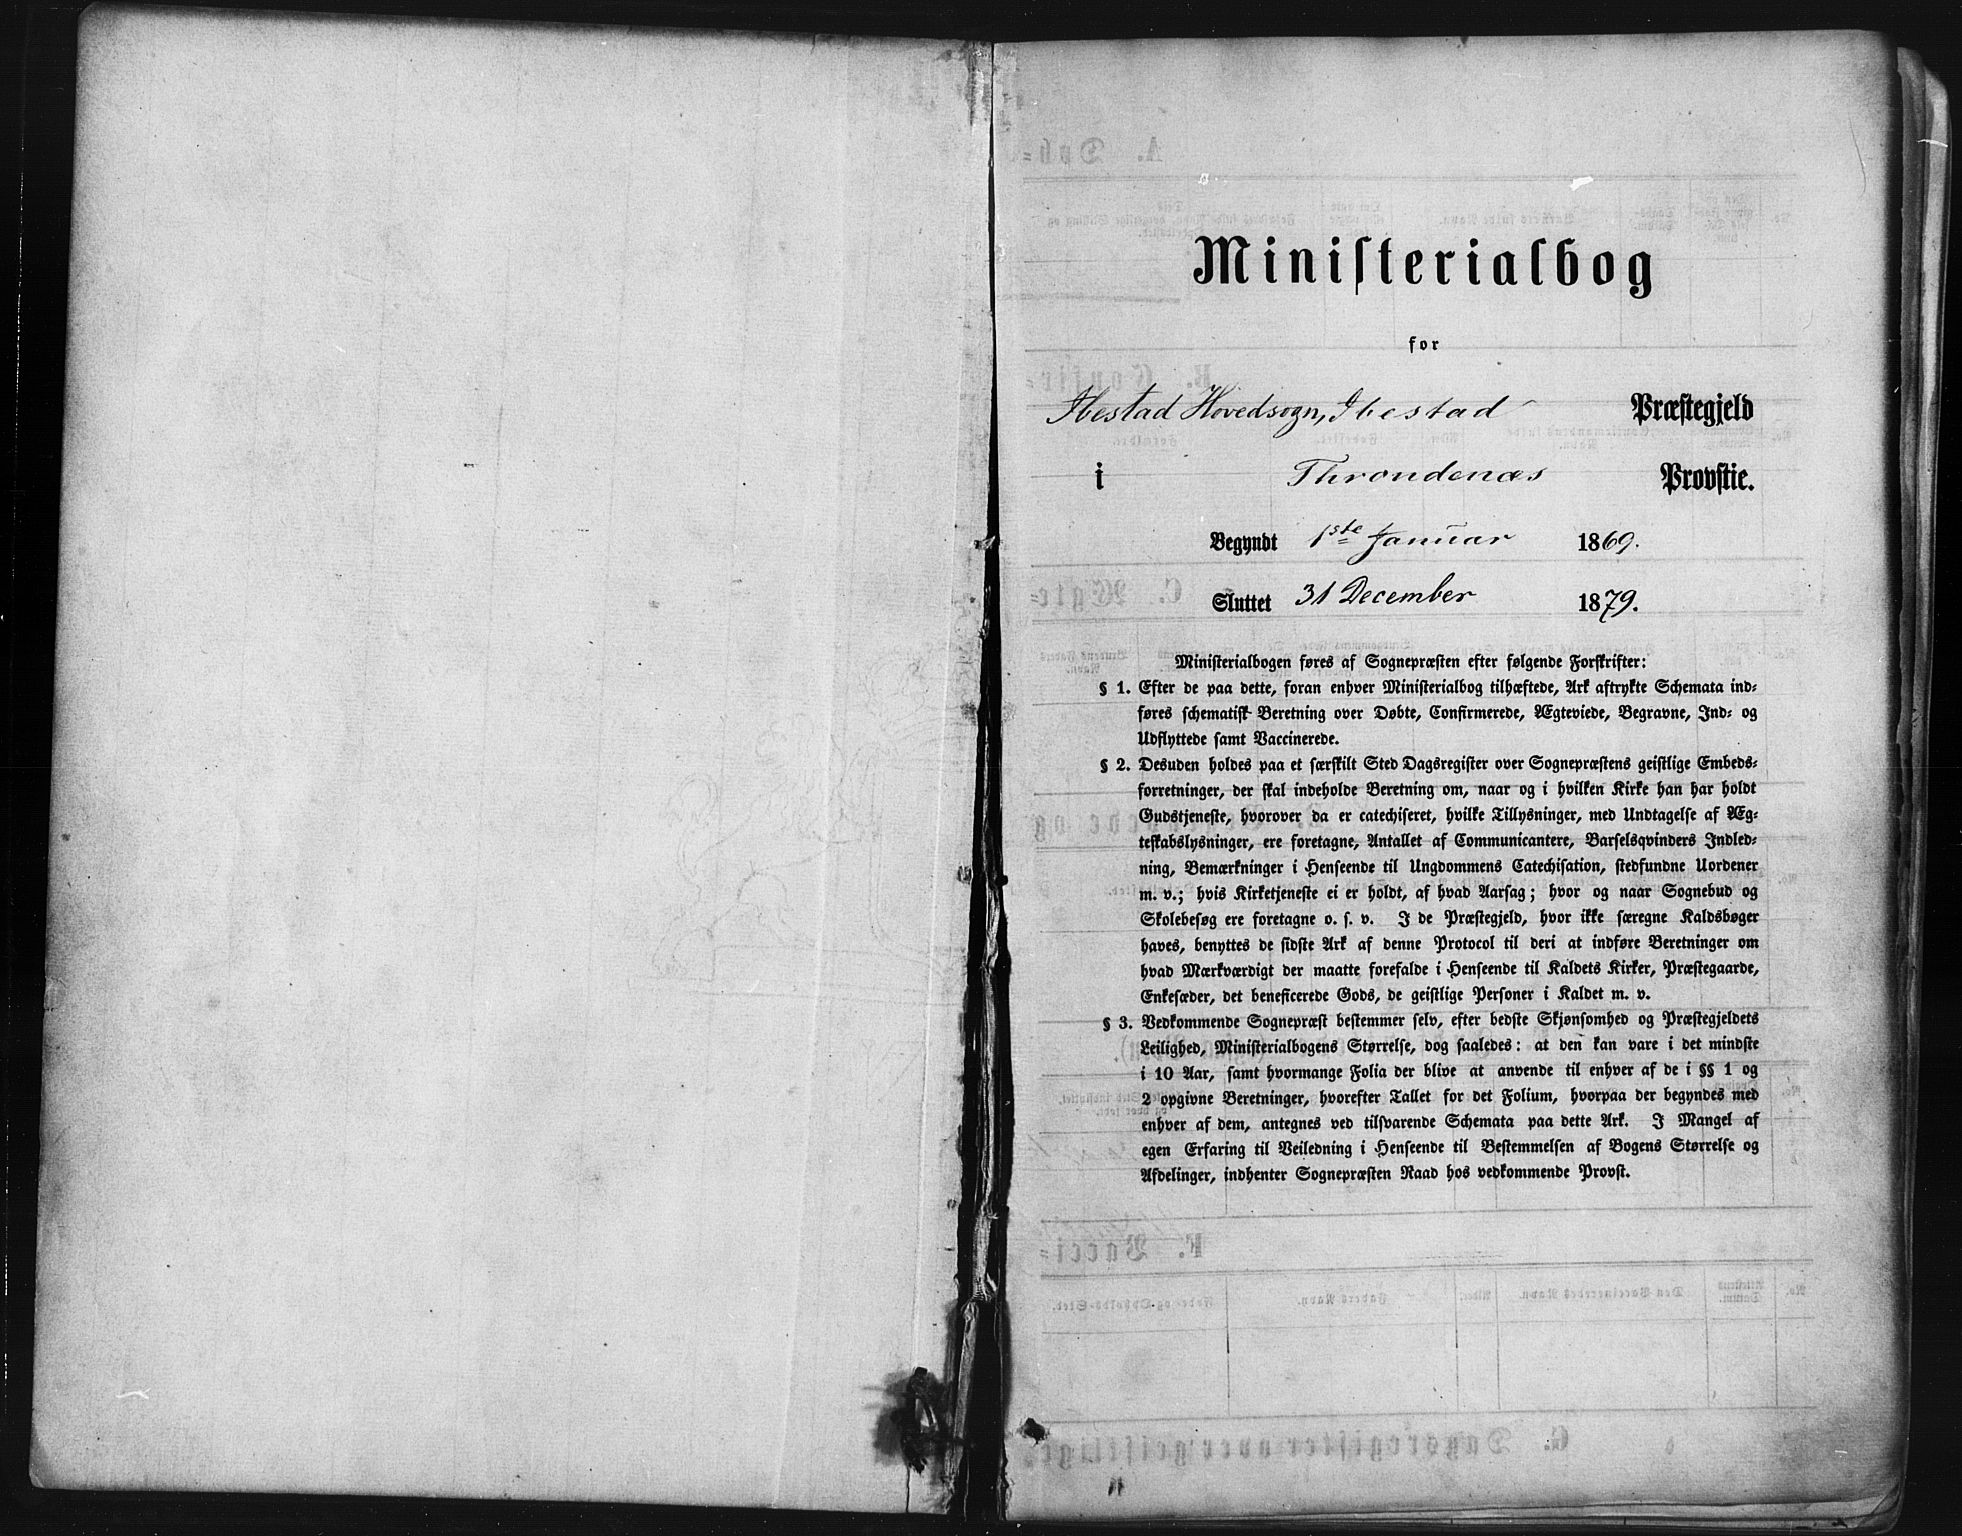 Ministerialbog
for
Ibestad Hovedsogn, Ibestad Præstegjeld
i Throndenæs Provstie.
Begyndt 1ste Januar 1869.
Sluttet 31 December 1879.
Ministerialbogen føres af Sognepræsten efter følgende Forskrifter:
§ 1. Efter de paa dette, foran enhver Ministerialbog tilhæftede, Ark aftrykte Schemata ind-
føres schematisk Beretning over Døbte, Confirmerede, Ægteviede, Begravne, Ind- og
Udflyttede samt Vaccinerede.
§ 2. Desuden holdes paa et særskilt Sted Dagsregister over Sognepræstens geistlige Embeds-
forretninger, der skal indeholde Beretning om, naar og i hvilken Kirke han har holdt
Gudstjeneste, hvorover da er catechiseret, hvilke Tillysninger, med Undtagelse af Æg-
teskabslysninger, ere foretagne, Antallet af Communicantere, Barselqvinders Indled-
ning, Bemærkninger i Henseende til Ungdommens Catechisation, stedfundne Uordener
m. v.; hvis Kirketjeneste ei er holdt, af hvad Aarsag; hvor og naar Sognebud og
Skolebesøg ere foretagne o. s. v. I de Præstegjeld, hvor ikke særegne Kaldsbøger
haves, benyttes de sidste Ark af denne Protocol til deri at indføre Beretninger om
hvad Mærkværdigt der maatte forefalde i Henseende til Kaldets Kirker, Præstegaarde,
Enkesæder, det beneficerede Gods, de geistlige Personer i Kaldet m. v.
§ 3. Vedkommende Sognepræst bestemmer selv, efter bedste Skjønsomhed og Præstegjeldets
Leilighed, Ministerialbogens Størrelse, dog saaledes: at den kan vare i det mindste
i 10 Aar, samt hvormange Folia der blive at anvende til enhver af de i §§ 1 og
2 opgivne Beretninger, hvorefter Tallet for det Folium, hvorpaa der begyndes med
enhver af dem, antegnes ved tilsvarende Schemata paa dette Ark. I Mangel af
egen Erfaring til Veiledning i Henseende til Bestemmelsen af Bogens Størrelse og
Afdelinger, indhenter Sognepræsten Raad hos vedkommende Provst.